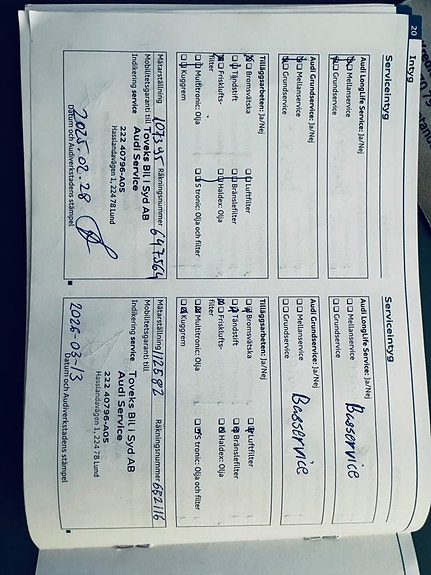 20
Intyg
Serviceintyg
Audi LongLife Service: Ja/Nej
Mellanservice
Grundservice
Audi Grundservice: Ja/Nej
Mellanservice
Grundservice
Tilläggsarbeten: Ja/Nej
Bromsvätska
Luftfilter
Tändstift
Bränslefilter
Friskluftsfilter
Haldex: Olja
Multitronic: Olja
S tronic: Olja och filter
Kuggrem
Mätarställning 107395 Räkningsnummer 647564
Mobilitetsgaranti till Toveks Bil i Syd AB
Indikering service Audi Service
222 40796-A05
Hasslandavägen 1, 224 78 Lund
2025-02-28
Datum och Audiverkstadens stämpel
Serviceintyg
Audi LongLife Service: Ja/Nej
Mellanservice
Grundservice
Basservice
Audi Grundservice: Ja/Nej
Mellanservice
Grundservice
Basservice
Tilläggsarbeten: Ja/Nej
Bromsvätska
Luftfilter
Tändstift
Bränslefilter
Friskluftsfilter
Haldex: Olja
Multitronic: Olja
S tronic: Olja och filter
Kuggrem
Mätarställning 112592 Räkningsnummer 682116
Mobilitetsgaranti till
Indikering service Toveks Bil i Syd AB
Audi Service
222 40796-A05
Hasslandavägen 1, 224 78 Lund
2026-03-13
Datum och Audiverkstadens stämpel